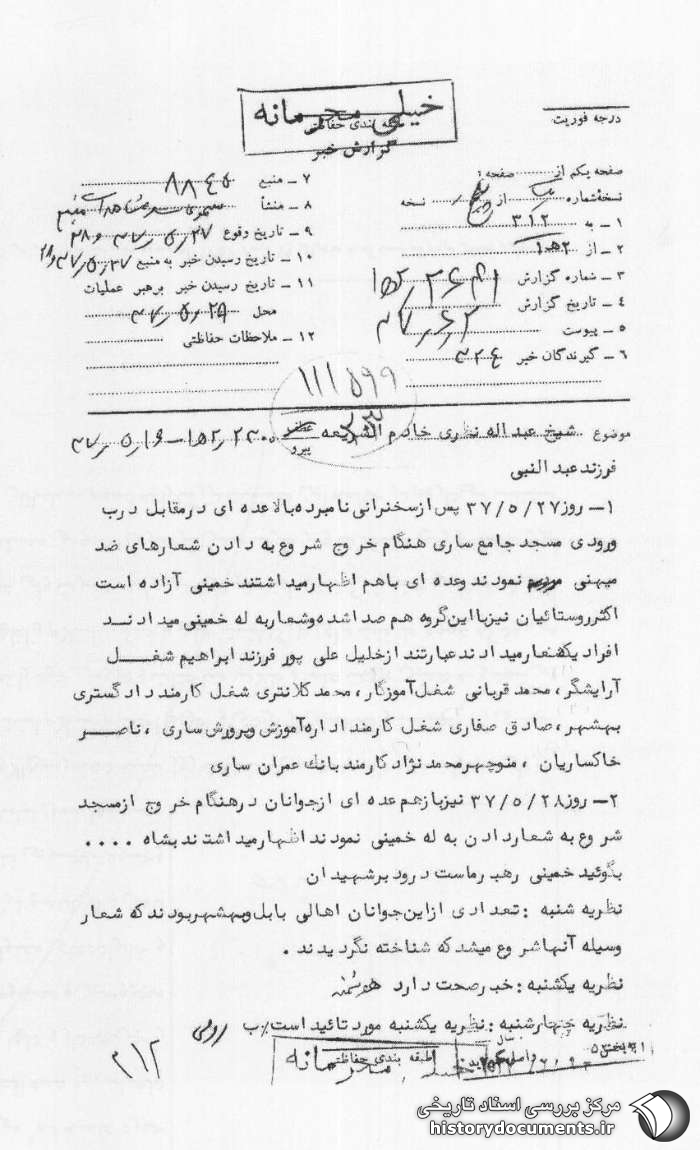 خیلی محرمانه
درجه فوریت
طبقه بندی حفاظتی
گزارش خبر
صفحه یکم از صفحه:
نسخهٔ شماره یک از پنج نسخه
۱ ـ به ۳۱۲
۲ ـ از
۳ ـ شماره گزارش
۴ ـ تاریخ گزارش ۳۷٫۶٫۲
۵ ـ پیوست
۶ ـ گیرندگان خبر ۳۲۶
۷ ـ منبع ۸۸۴۰
۸ ـ منشأ
۹ ـ تاریخ وقوع ۳۷٫۵٫۲۷ و ۲۸
۱۰ ـ تاریخ رسیدن خبر به منبع ۳۷٫۵٫۲۷ و ۲۸
۱۱ ـ تاریخ رسیدن خبر برهبر عملیات
محل ۳۷٫۵٫۲۹
۱۲ ـ ملاحظات حفاظتی
۱۱۱۵۹۹
موضوع شیخ عبداله نظری خادم الشریعه
پیرو
فرزند عبدالنبی
۱ـ روز ۳۷/۵/۲۷ پس از سخنرانی نامبرده بالا عده ای در مقابل درب
ورودی مسجد جامع ساری هنگام خروج شروع به دادن شعارهای ضد
میهنی نمودند وعده ای باهم اظهار میداشتند خمینی آزاده است
اکثر روستائیان نیز با این گروه هم صدا شده و شعار به له خمینی میدادند
افراد یکه شعار میدادند عبارتند از خلیل علی پور فرزند ابراهیم شغل
آرایشگر، محمد قربانی شغل آموزگار، محمد کلانتری شغل کارمند دادگستری
بهشهر، صادق صفاری شغل کارمند اداره آموزش وپرورش ساری ، ناصر
خاکساریان ، منوچهر محمد نژاد کارمند بانک عمران ساری
۲ـ روز ۳۷/۵/۲۸ نیز باز هم عده ای از جوانان در هنگام خروج از مسجد
شروع به شعار دادن به له خمینی نمودند اظهار میداشتند بشاه ....
بگوئید خمینی رهبر ماست درود بر شهیدان
نظریه شنبه : تعدادی از این جوانان اهالی بابل وبهشهر بودند که شعار
وسیله آنها شروع میشد که شناخته نگردیدند .
نظریه یکشنبه : خبر صحت دارد
نظریه چهارشنبه : نظریه یکشنبه مورد تائید است٪ ب
۳۱۲
طبقه بندی حفاظتی
خیلی محرمانه
مرکز بررسی اسناد تاریخی
historydocuments.ir